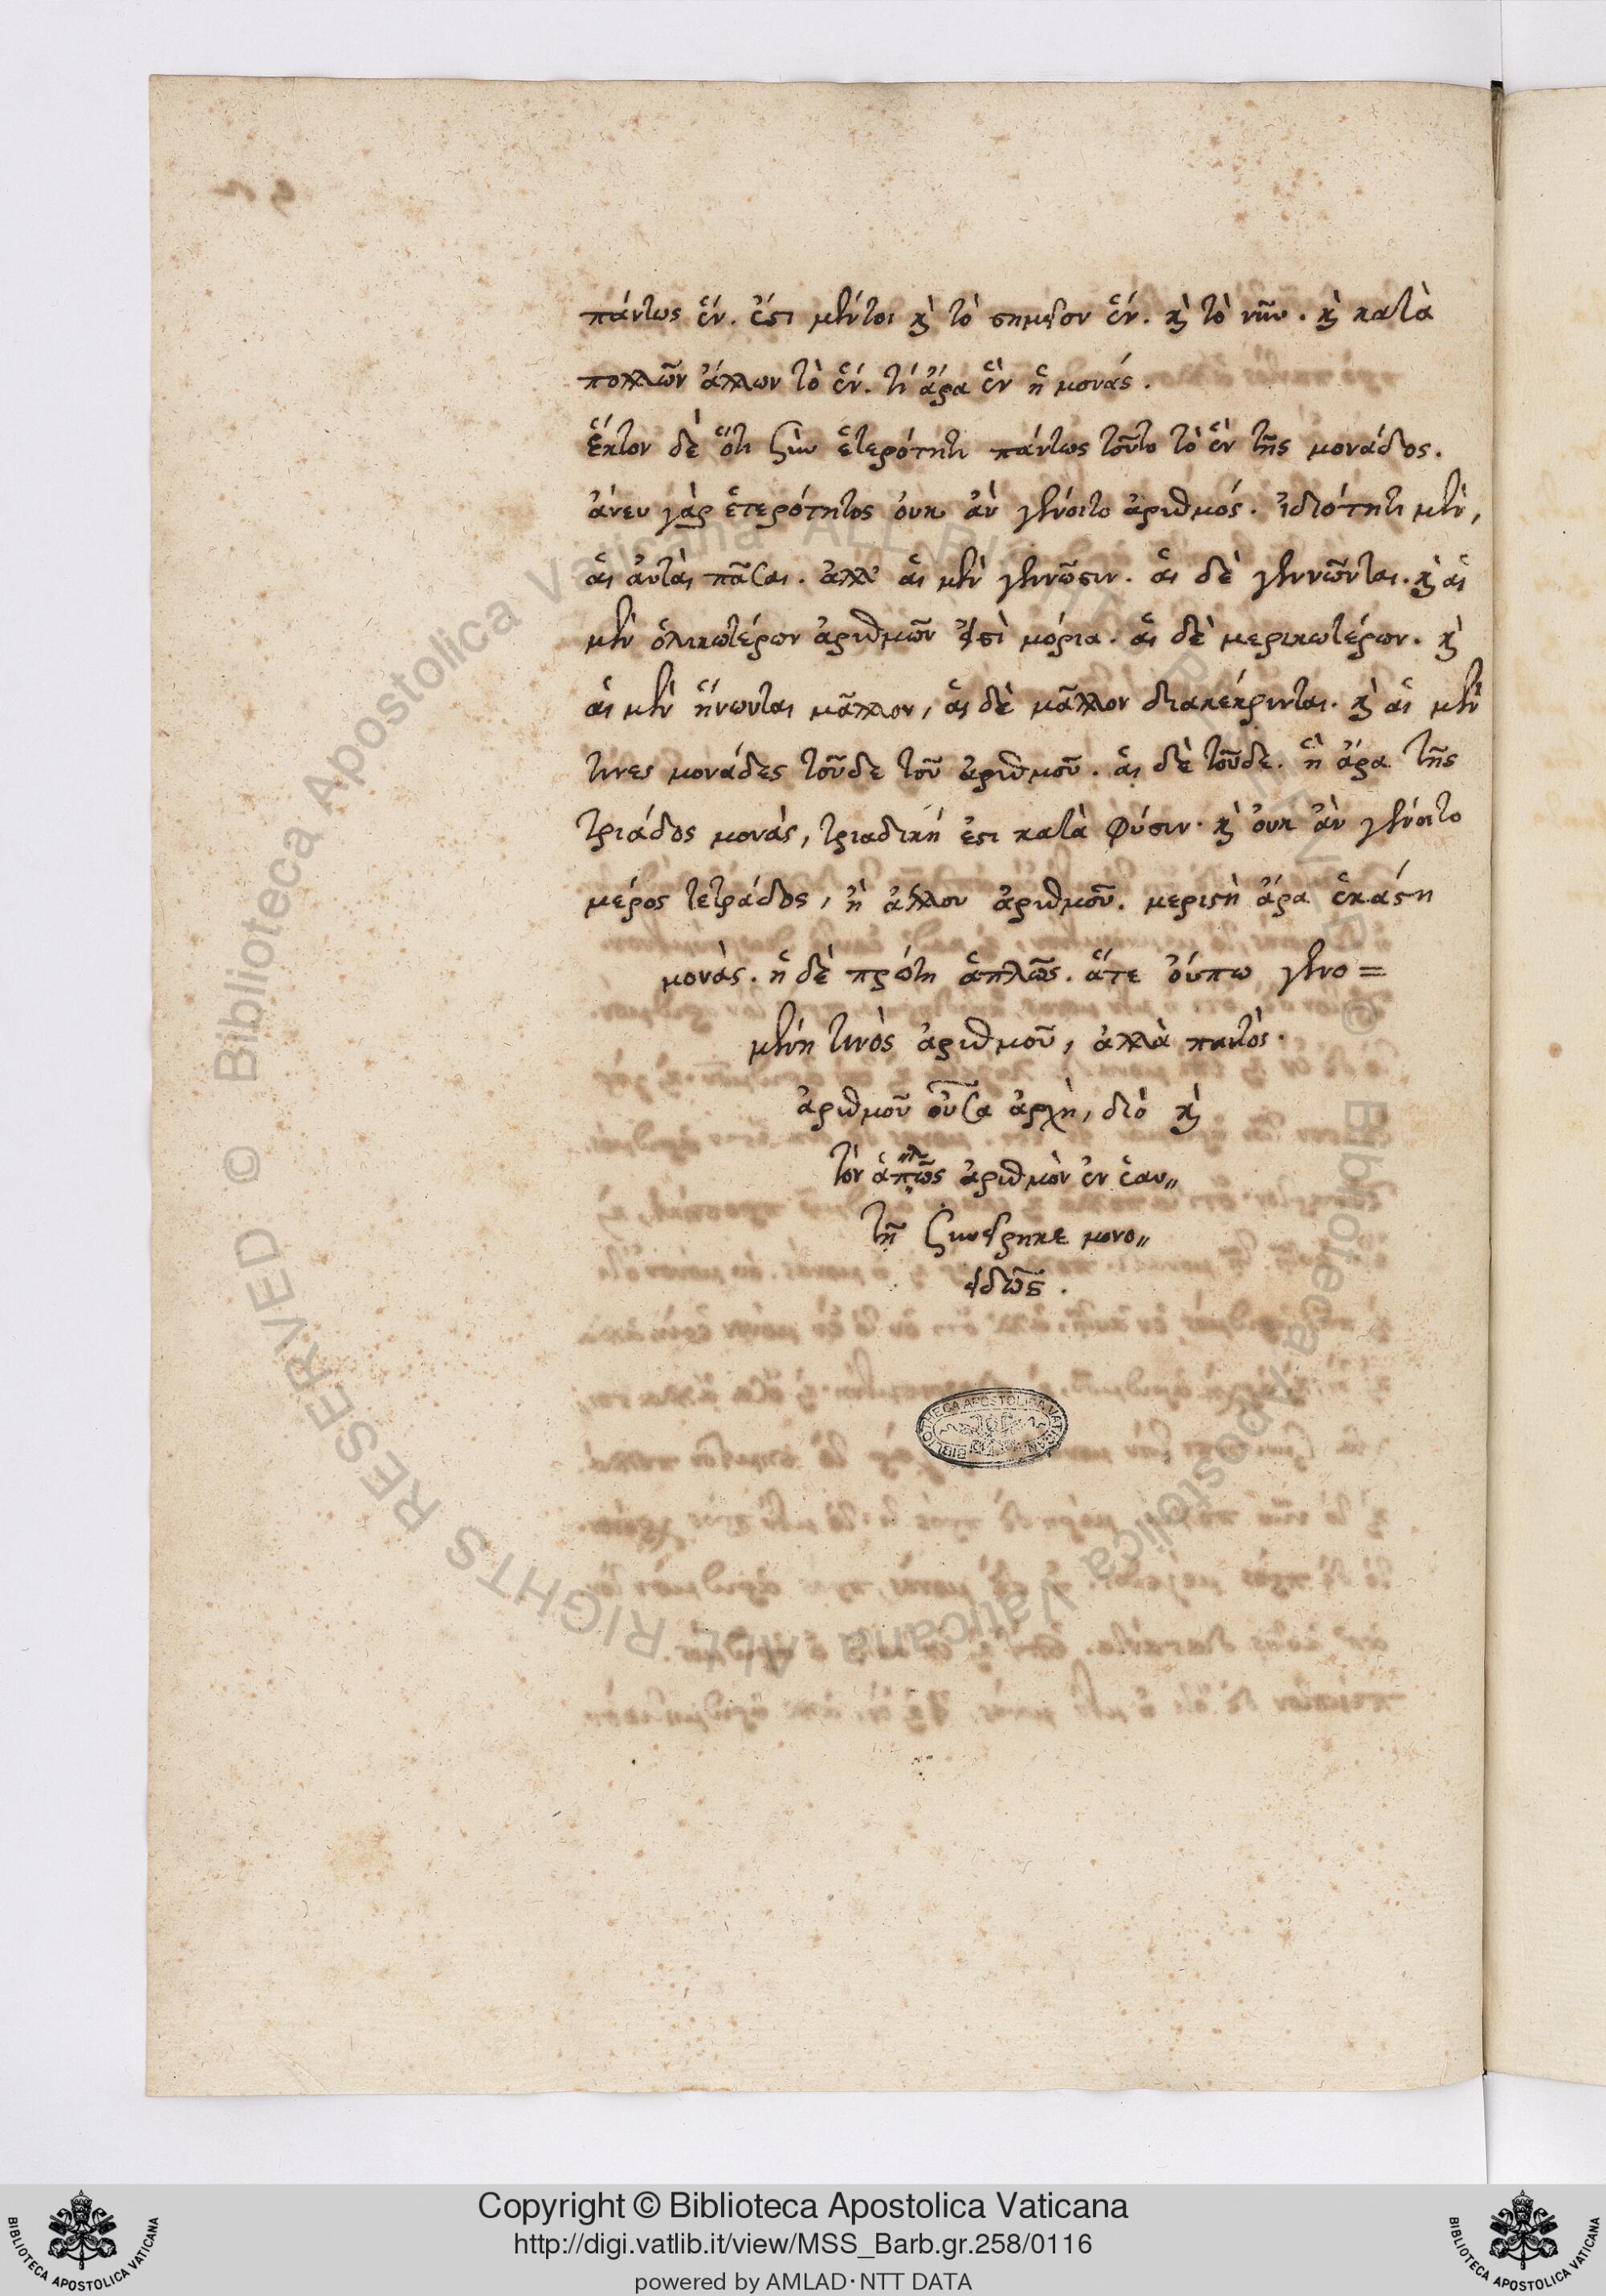 πάντως ἕν. ἔστι μέντοι καὶ τὸ σημεῖον ἕν. καὶ τὸ νῦν. καὶ κατὰ
πολλῶν ἄλλων τὸ ἕν. τί ἄρα ἓν ἡ μονάς.
ἕκτον δὲ ὅτι σὺν ἑτερότητι πάντως τοῦτο τὸ ἓν τῆς μονάδος.
ἄνευ γὰρ ἑτερότητος οὐκ ἂν γένοιτο ἀριθμός. ἰδιότητι μὲν,
αἱ αὐταὶ πᾶσαι. ἀλλ' αἱ μὲν γεννῶσιν. αἱ δὲ γεννῶνται. καὶ αἱ
μὲν ὁλικωτέρων ἀριθμῶν εἰσὶ μόρια. αἱ δὲ μερικωτέρων. καὶ
αἱ μὲν ἥνωνται μᾶλλον, αἱ δὲ μᾶλλον διακέκρινται. καὶ αἱ μὲν
τινες μονάδες τοῦδε τοῦ ἀριθμοῦ. αἱ δὲ τοῦδε. ἡ ἄρα τῆς
τριάδος μονὰς, τριαδική ἐστι κατὰ φύσιν. καὶ οὐκ ἂν γένοιτο
μέρος τετράδος, ἢ ἄλλου ἀριθμοῦ. μεριστὴ ἄρα ἑκάστη
μονὰς. ἡ δὲ πρώτη ἁπλῶς. ἅτε οὔπω γενο=
μένη τινὸς ἀριθμοῦ, ἀλλὰ παντὸς.
ἀριθμοῦ οὖσα ἀρχὴ, διὸ καὶ
τὸν ἁπλῶς ἀριθμὸν ἐν ἑαυ〃
τῇ συνείρηκε μονο〃
ειδῶς.
BIBLIOTHECA APOSTOLICA VATICANA
© Biblioteca Apostolica Vaticana ALL RIGHTS RESERVED
© Biblioteca Apostolica Vaticana ALL RIGHTS RESERVED
Copyright © Biblioteca Apostolica Vaticana
http://digi.vatlib.it/view/MSS_Barb.gr.258/0116
powered by AMLAD·NTT DATA
BIBLIOTECA APOSTOLICA VATICANA
BIBLIOTECA APOSTOLICA VATICANA